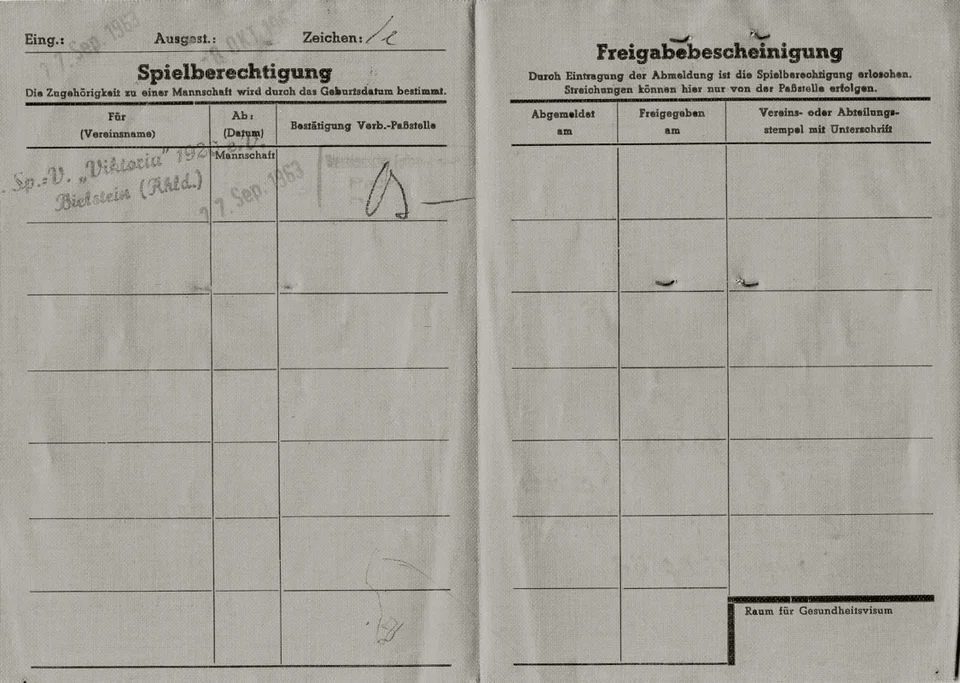 Eing.: 17. Sep. 1963 Ausgest.: OKT. Zeichen:
Spielberechtigung
Die Zugehörigkeit zu einer Mannschaft wird durch das Geburtsdatum bestimmt.
Für
(Vereinsname)
Ab:
(Datum)
Mannschaft
Bestätigung Verb.-Paßstelle
Sp.-V. „Viktoria“
Bielstein (Rhld.)
17. Sep. 1963
Freigabebescheinigung
Durch Eintragung der Abmeldung ist die Spielberechtigung erloschen.
Streichungen können hier nur von der Paßstelle erfolgen.
Abgemeldet
am
Freigegeben
am
Vereins- oder Abteilungs-
stempel mit Unterschrift
Raum für Gesundheitsvisum